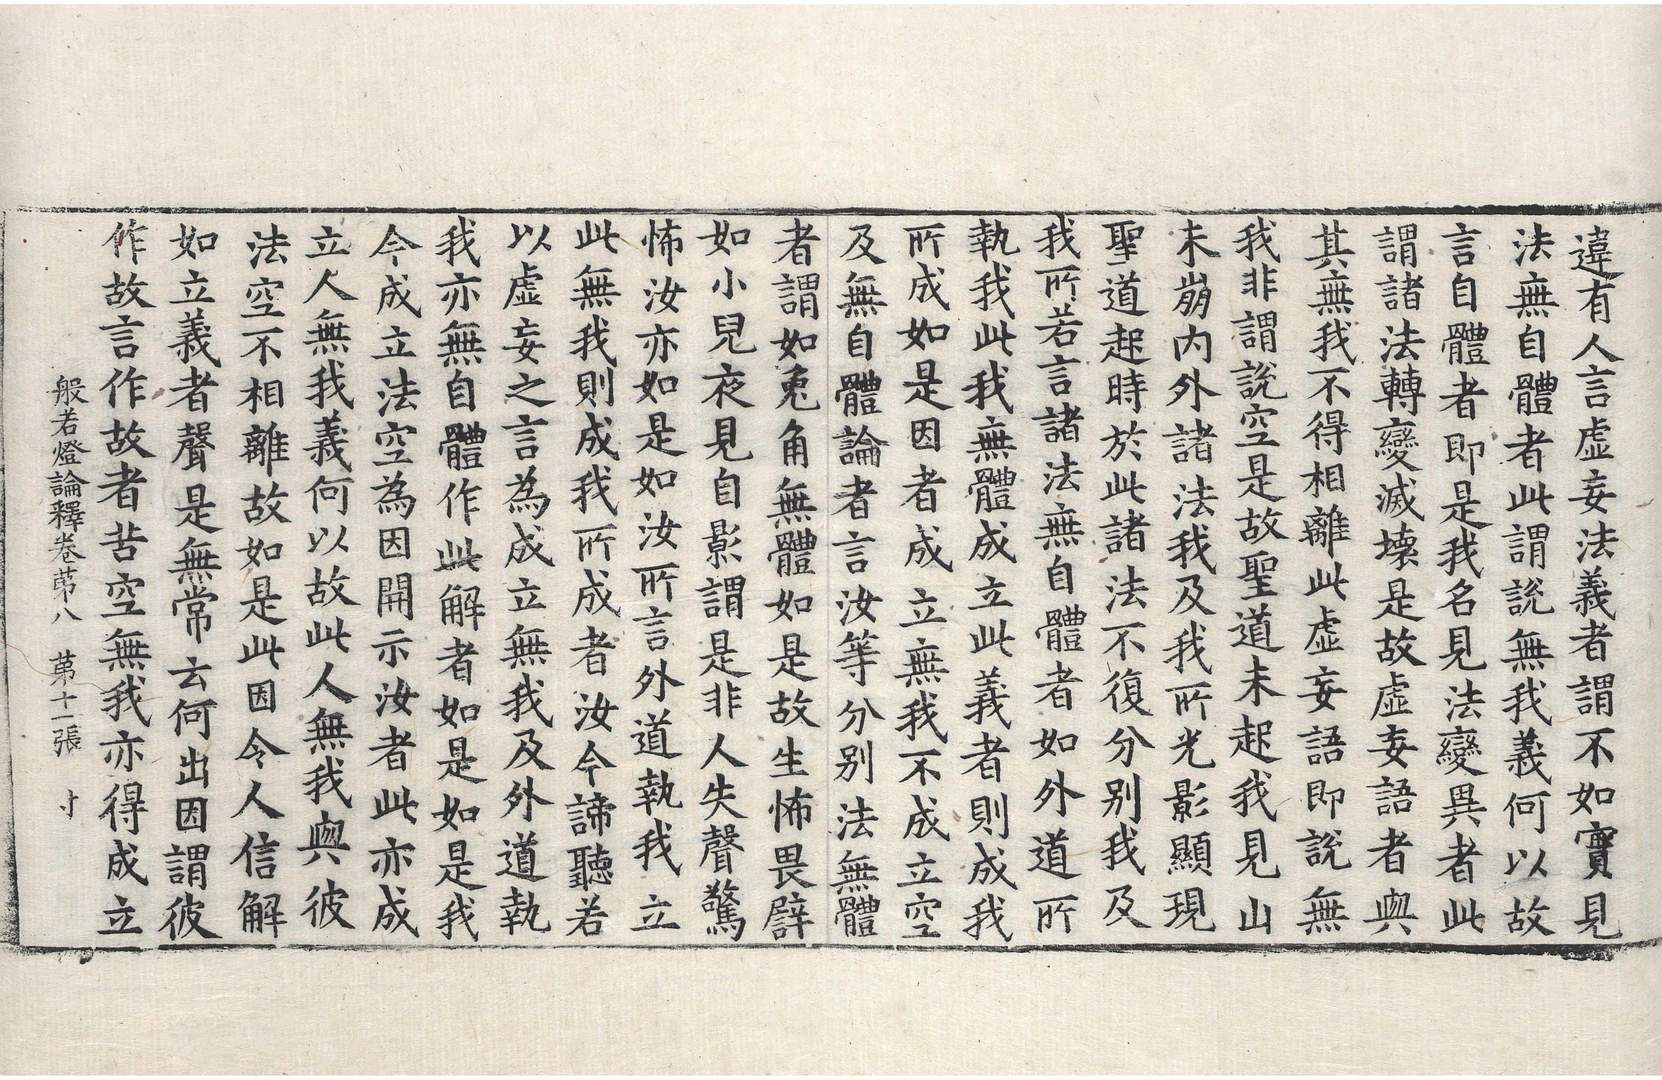 違有人言虛妄法義者謂不如實見
法無自體者此謂說無我義何以故
言自體者即是我名見法變異者此
謂諸法轉變滅壞是故虛妄語者與
其無我不得相離此虛妄語即說無
我非謂說空是故聖道未起我見山
未崩內外諸法我及我所光影顯現
聖道起時於此諸法不復分別我及
我所若言諸法無自體者如外道所
執我此我無體成立此義者則成我
所成如是因者成立無我不成立空
及無自體論者言汝等分別法無體
者謂如兎角無體如是故生怖畏譬
如小兒夜見自影謂是非人失聲驚
怖汝亦如是如汝所言外道執我立
此無我則成我所成者汝今諦聽若
以虛妄之言為成立無我及外道執
我亦無自體作此解者如是如是我
今成立法空為因開示汝者此亦成
立人無我義何以故此人無我與彼
法空不相離故如是此因令人信解
如立義者聲是無常云何出因謂彼
作故言作故者苦空無我亦得成立
般若燈論釋卷苐八 苐十一張 寸